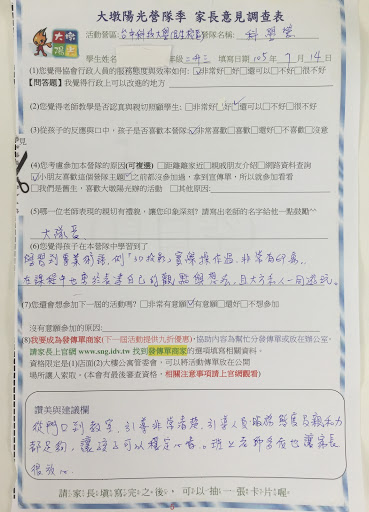 大墩陽光營隊季 家長意見調查表
大墩
陽光
活動營區:台中科技大學 營隊名稱: 科學營
學生姓名 年級 二升三 填寫日期 105年 7月 14日
(1)您覺得協會行政人員的服務態度與效率如何:☑非常好□好□還可以□不好□很不好
【問答題】我覺得行政上可以改進的地方
(2)您覺得老師教學是否認真與親切照顧學生:□非常好☑好□還可以□不好□很不好
(3)從孩子的反應與口中,孩子是否喜歡本營隊☑非常喜歡□喜歡□還好□不喜歡□沒意
見
(4)您考慮參加本營隊的原因(可複選) □距離離家近□親戚朋友介紹□網路資料查詢
☑小朋友喜歡這個營隊主題☑之前都沒參加過,拿到宣傳單,所以就參加看看
□我們是舊生,喜歡大墩陽光辦的活動 □其他原因:
(5)哪一位老師表現的親切有禮貌,讓您印象深刻?請寫出老師的名字給他一點鼓勵^^
(6)您覺得孩子在本營隊中學習到了
學習到專業術語,例「3D投影」實際操作過,非常有印象.
在課程中也要求表達自己的觀點與想法,且大方和人一同遊玩。
(7)您還會想參加下一屆的活動嗎?□非常有意願☑有意願□還好□不想參加
沒有意願參加的原因:
(8)我要成為發傳單商家(下一屆活動提供九折優惠),協助內容為幫忙分發傳單或放在辦公室。
請家長上官網 www.sng.idv.tw 找到發傳單商家的選項填寫相關資料。
資格限定是(1)店面(2)大樓公寓管委會,可以將活動傳單放在公開
場所讓人索取。(本會有最後審查資格,相關注意事項請上官網觀看)
讚美與建議欄
從門口到教室,引導非常清楚,引導人員服務態度及親和力
都足夠,讓孩子可以穩定心情。班上老師多度也讓家長
很放心.
請家長填寫完之後,可以抽一張卡片喔